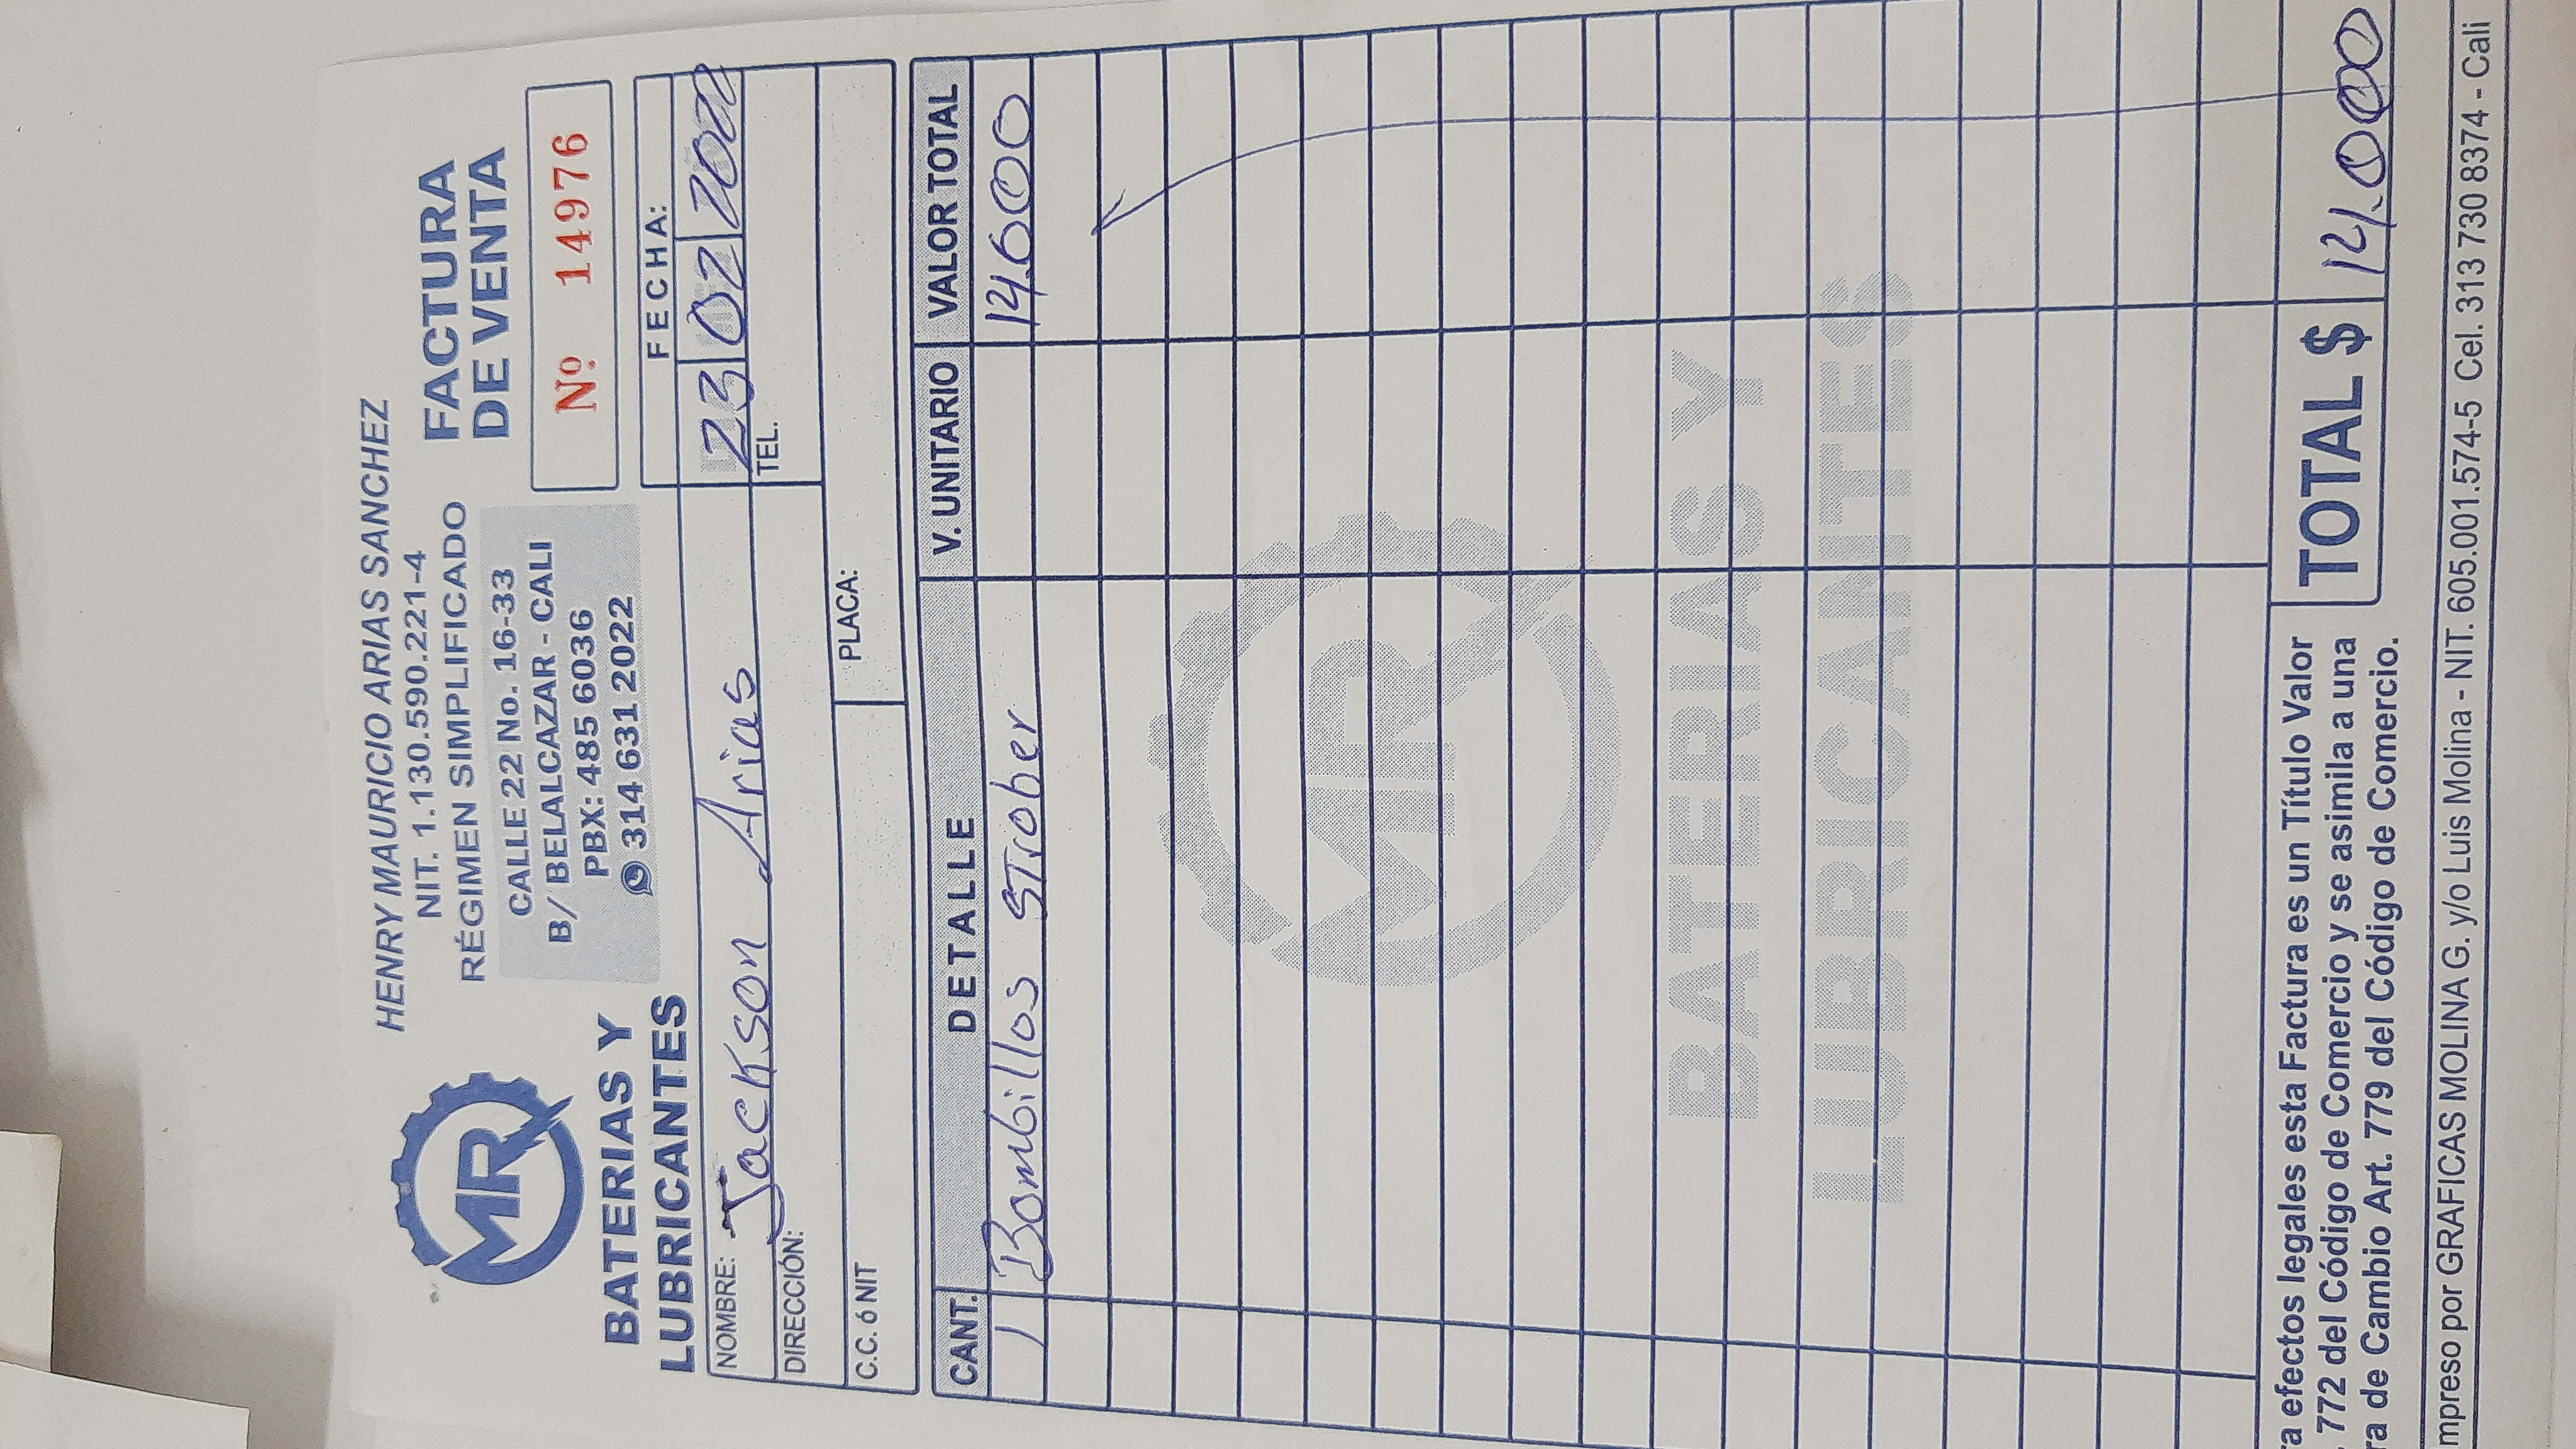 HENRY MAURICIO ARIAS SANCHEZ
NIT. 1.130.590.221-4
RÉGIMEN SIMPLIFICADO
FACTURA
DE VENTA
MR
BATERIAS Y
LUBRICANTES
CALLE 22 No. 16-33
B/ BELALCAZAR - CALI
PBX: 485 6036
314 631 2022
Nº 14976
FECHA:
NOMBRE: Jackson Arias
23 02 2022
DIRECCIÓN:
TEL.
C.C. ó NIT
PLACA:
CANT. DETALLE V. UNITARIO VALOR TOTAL
1 Bombillos STrober 14.000
MR
BATERIAS Y
LUBRICANTES
a efectos legales esta Factura es un Título Valor
772 del Código de Comercio y se asimila a una
ra de Cambio Art. 779 del Código de Comercio.
TOTAL $ 14.000
mpreso por GRAFICAS MOLINA G. y/o Luis Molina - NIT. 605.001.574-5 Cel. 313 730 8374 - Cali